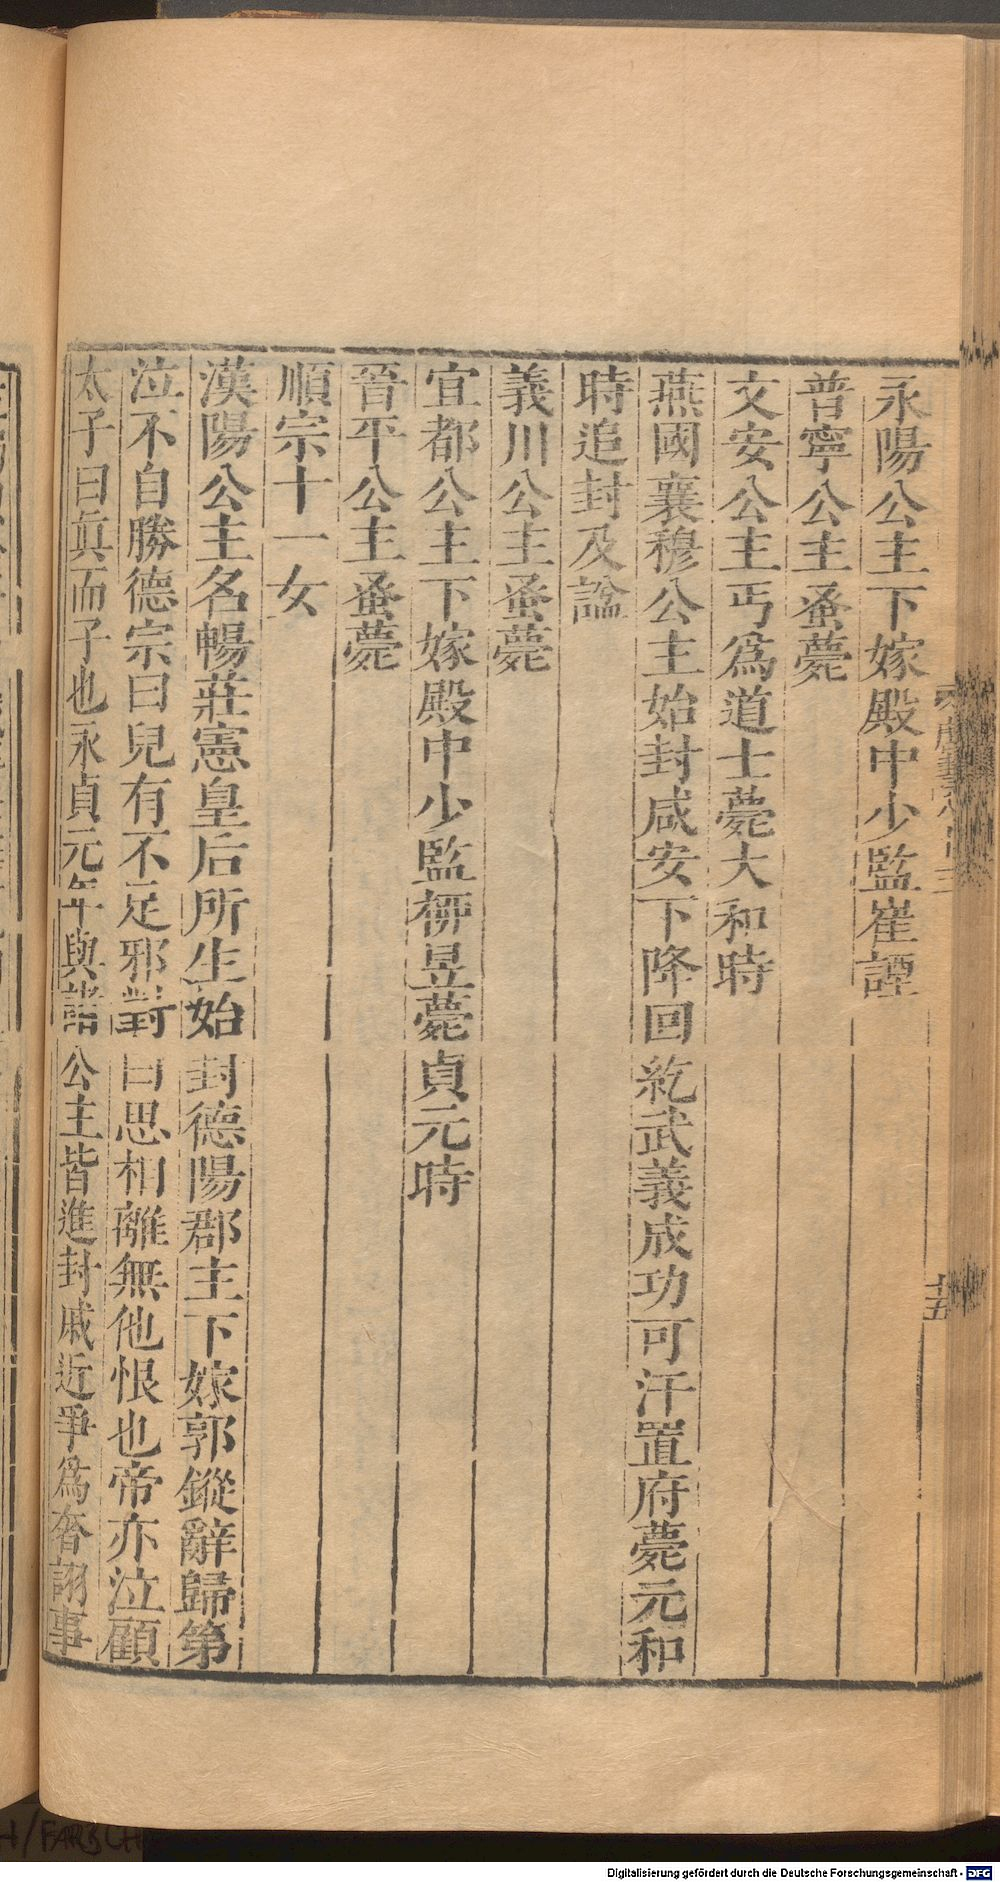 永陽公主下嫁殿中少監崔諲
普寧公主蚤薨
文安公主丐爲道士薨大和時
燕國襄穆公主始封咸安下降回紇武義成功可汗置府薨元和
時追封及謚
義川公主蚤薨
宜都公主下嫁殿中少監柳昱薨貞元時
晉平公主蚤薨
順宗十一女
漢陽公主名暢莊憲皇后所生始封德陽郡主下嫁郭鏦辭歸第
泣不自勝德宗曰兒有不足邪對曰思相離無他恨也帝亦泣顧
太子曰眞而子也永貞元年與諸公主皆進封戚近爭爲奢詡事
十五
Digitalisierung gefördert durch die Deutsche Forschungsgemeinschaft - DFG